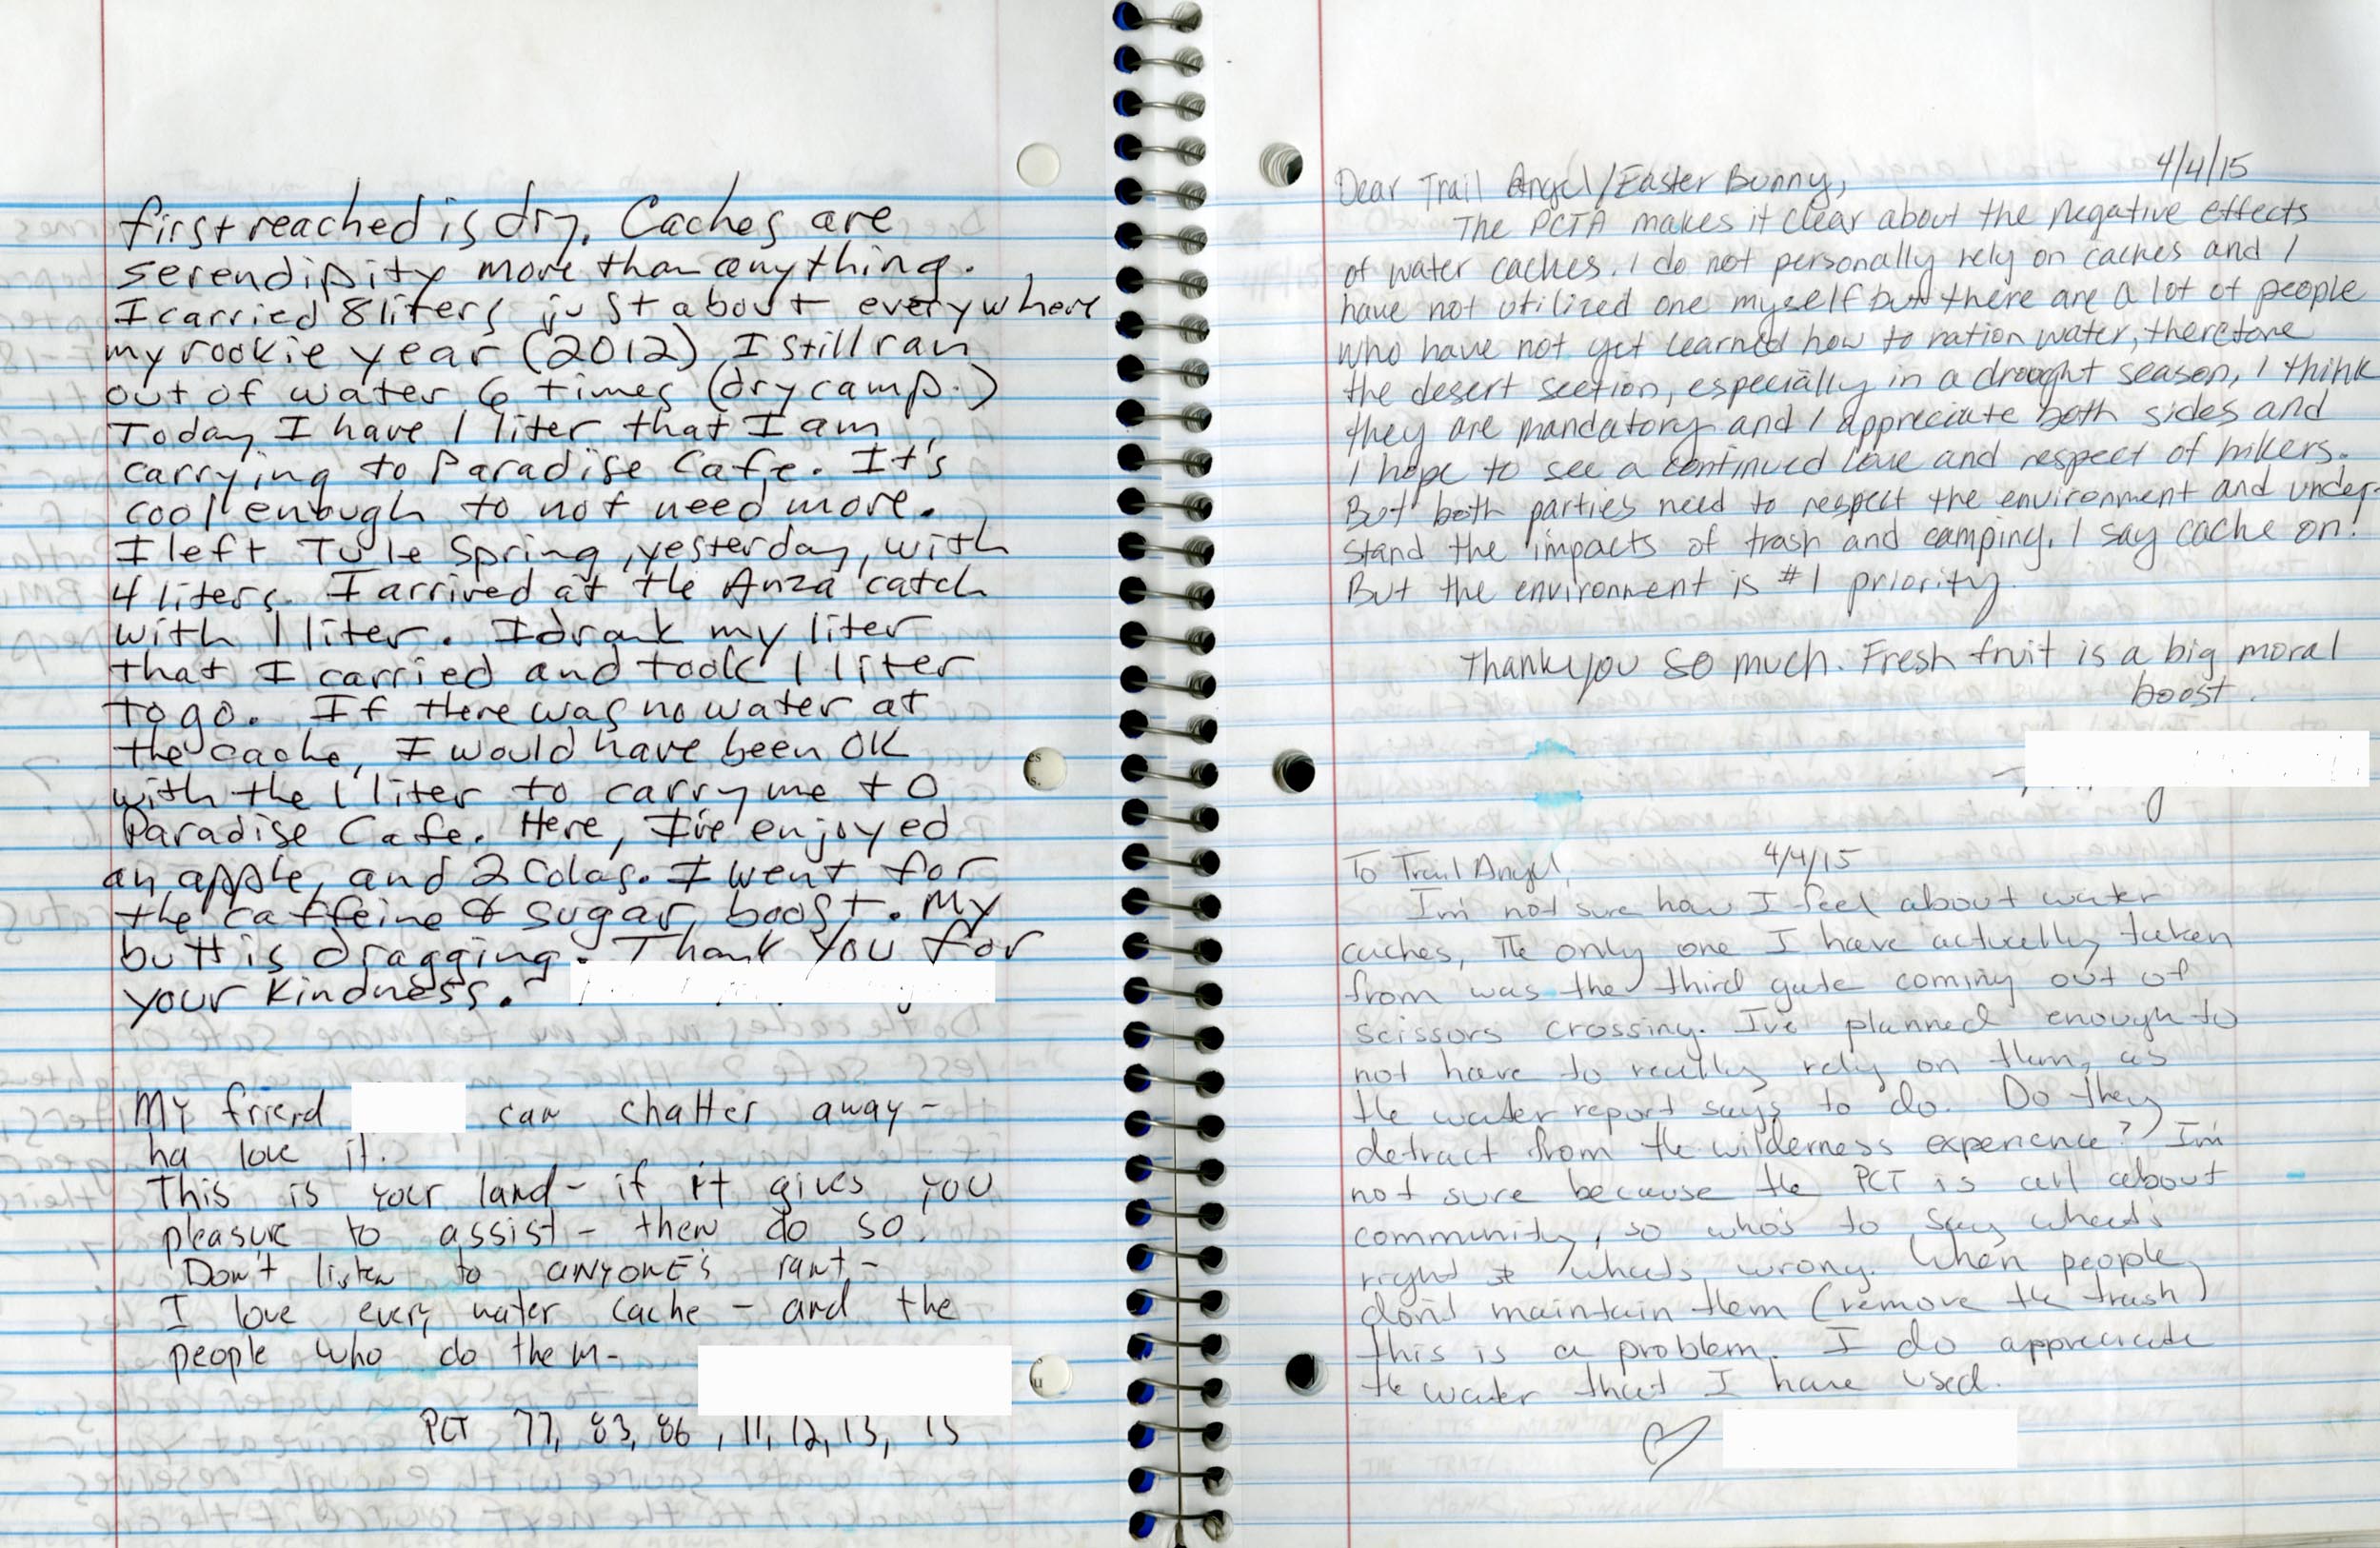 first reached is dry. Caches are
serendipity more than anything.
I carried 8 liters just about everywhere
my rookie year (2012) I still ran
out of water 6 times (dry camp.)
Today I have 1 liter that I am
carrying to Paradise Cafe. It's
cool enough to not need more.
I left Tule Spring, yesterday, with
4 liters. I arrived at the Anza catch
with 1 liter. I drank my liter
that I carried and took 1 liter
to go. If there was no water at
the cache, I would have been OK
with the 1 liter to carry me to
Paradise Cafe. Here, I've enjoyed
an apple, and 2 Colas. I went for
the caffeine & sugar boost. My
butt is dragging. Thank You for
your kindness.
My friend can chatter away -
ha love it.
This is your land - if it gives you
pleasure to assist - then do so.
Don't listen to anyone's rant -
I love every water cache - and the
people who do them -
PCT 77, 83, 86, 11, 12, 13, 15
4/4/15
Dear Trail Angel/Easter Bunny,
The PCTA makes it clear about the negative effects
of water caches. I do not personally rely on caches and I
have not utilized one myself but there are a lot of people
who have not yet learned how to ration water, therefore
the desert section, especially in a drought season, I think
they are mandatory and I appreciate both sides and
I hope to see a continued love and respect of hikers.
But both parties need to respect the environment and under-
stand the impacts of trash and camping. I say cache on!
But the environment is #1 priority.
Thank you so much. Fresh fruit is a big moral
boost.
To Trail Angel, 4/4/15
I'm not sure how I feel about water
caches, The only one I have actually taken
from was the third gate coming out of
scissors crossing. I've planned enough to
not have to really rely on them, as
the water report says to do. Do they
detract from the wilderness experience? I'm
not sure because the PCT is all about
community, so who's to say what's
right what's wrong. When people
don't maintain them (remove the trash)
this is a problem. I do appreciate
the water that I have used.